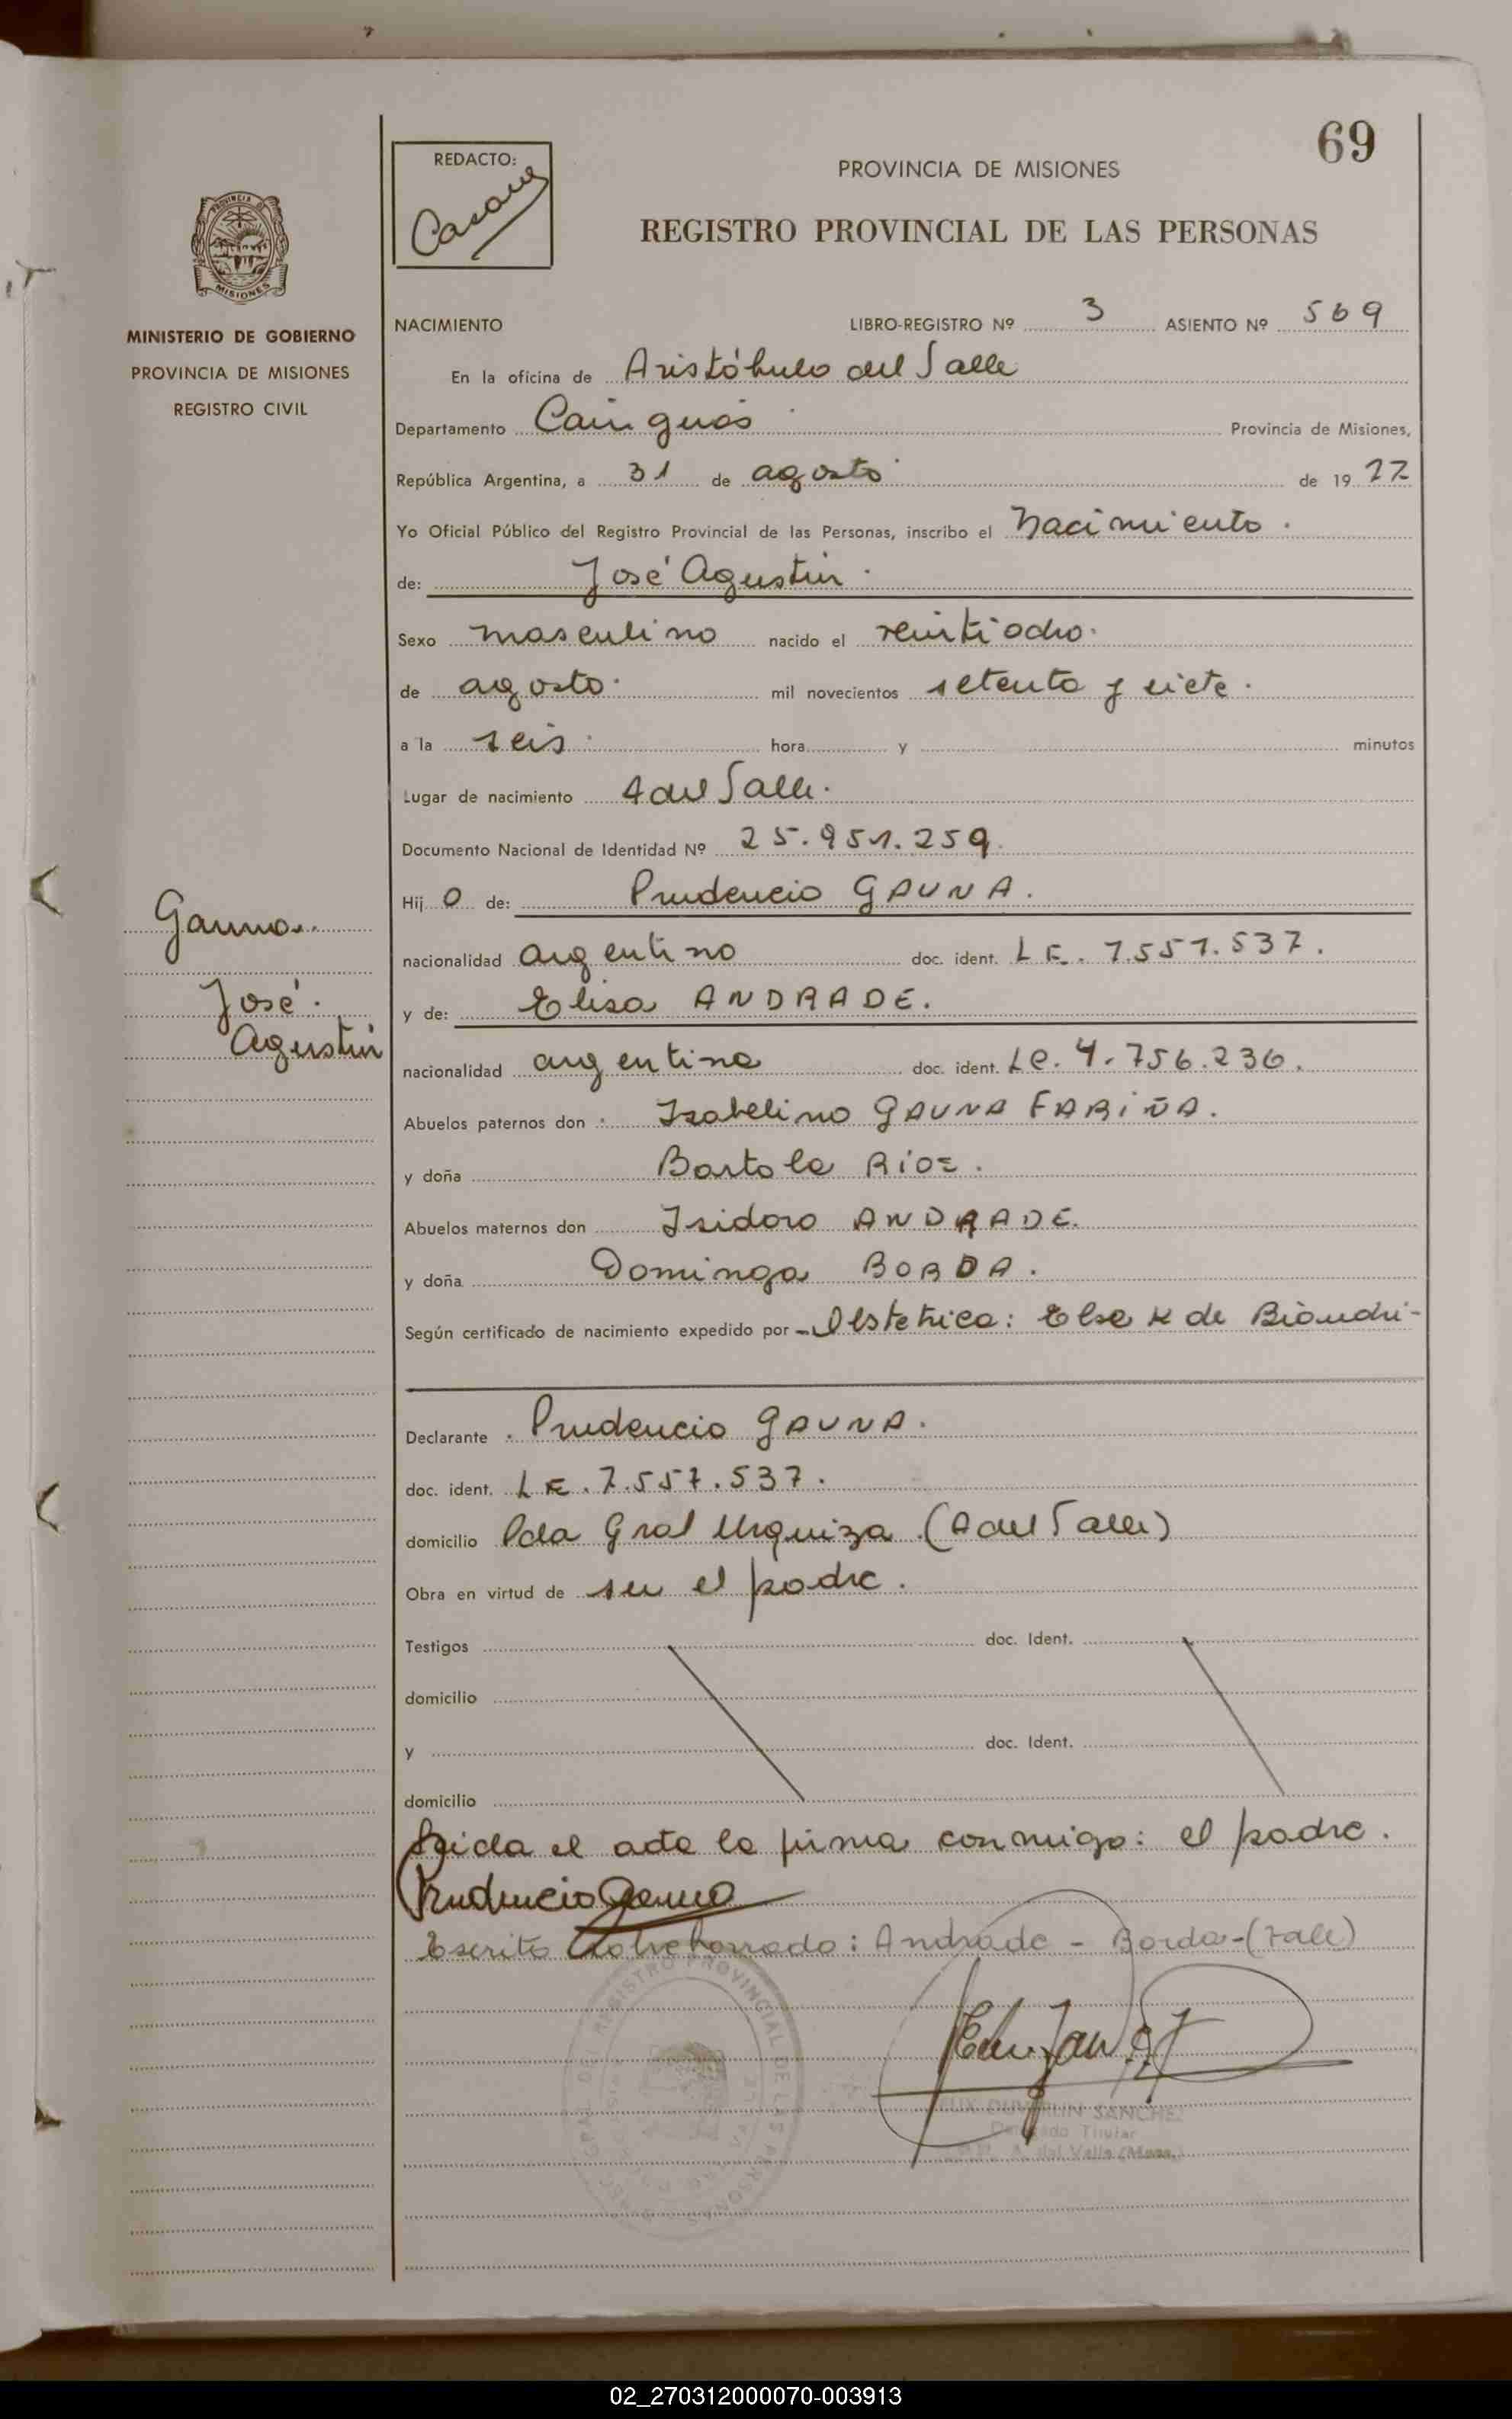 69
REDACTO:
PROVINCIA DE MISIONES
REGISTRO PROVINCIAL DE LAS PERSONAS
MINISTERIO DE GOBIERNO
PROVINCIA DE MISIONES
REGISTRO CIVIL
NACIMIENTO LIBRO-REGISTRO Nº 3 ASIENTO Nº 569
En la oficina de Aristóbulo del Valle
Departamento Cainguás Provincia de Misiones,
República Argentina, a 31 de agosto de 19 77
Yo Oficial Público del Registro Provincial de las Personas, inscribo el nacimiento.
de: José Agustín.
Sexo masculino nacido el veintiocho.
de agosto. mil novecientos setenta y siete.
a la seis. hora y minutos
Lugar de nacimiento A del Valle.
Documento Nacional de Identidad Nº 25.951.259.
Hij o de: Prudencio GAUNA.
nacionalidad argentino doc. ident. L E. 7.557.537.
y de: Elisa ANDRADE.
nacionalidad argentina doc. ident. L C. 4.756.236.
Gauna.
José.
Agustín
Abuelos paternos don Isabelino GAUNA FARIÑA.
y doña Bartola RIOS.
Abuelos maternos don Isidoro ANDRADE.
y doña Dominga BORDA.
Según certificado de nacimiento expedido por - Obstetrica: Elsa K de Biondri-
Declarante. Prudencio GAUNA.
doc. ident. L E. 7.557.537.
domicilio Pda Gral Urquiza (A del Valle)
Obra en virtud de ser el padre.
Testigos doc. Ident.
domicilio
y doc. Ident.
domicilio
Leida el acta la firma conmigo: el padre.
Prudencio Gauna
Escrito sobreborrado: Andrade - Borda - (Vale)
REGISTRO PROVINCIAL DE LAS PERSONAS
SANCHEZ
Titular
A. del Valle (Mnes.)
02_270312000070-003913